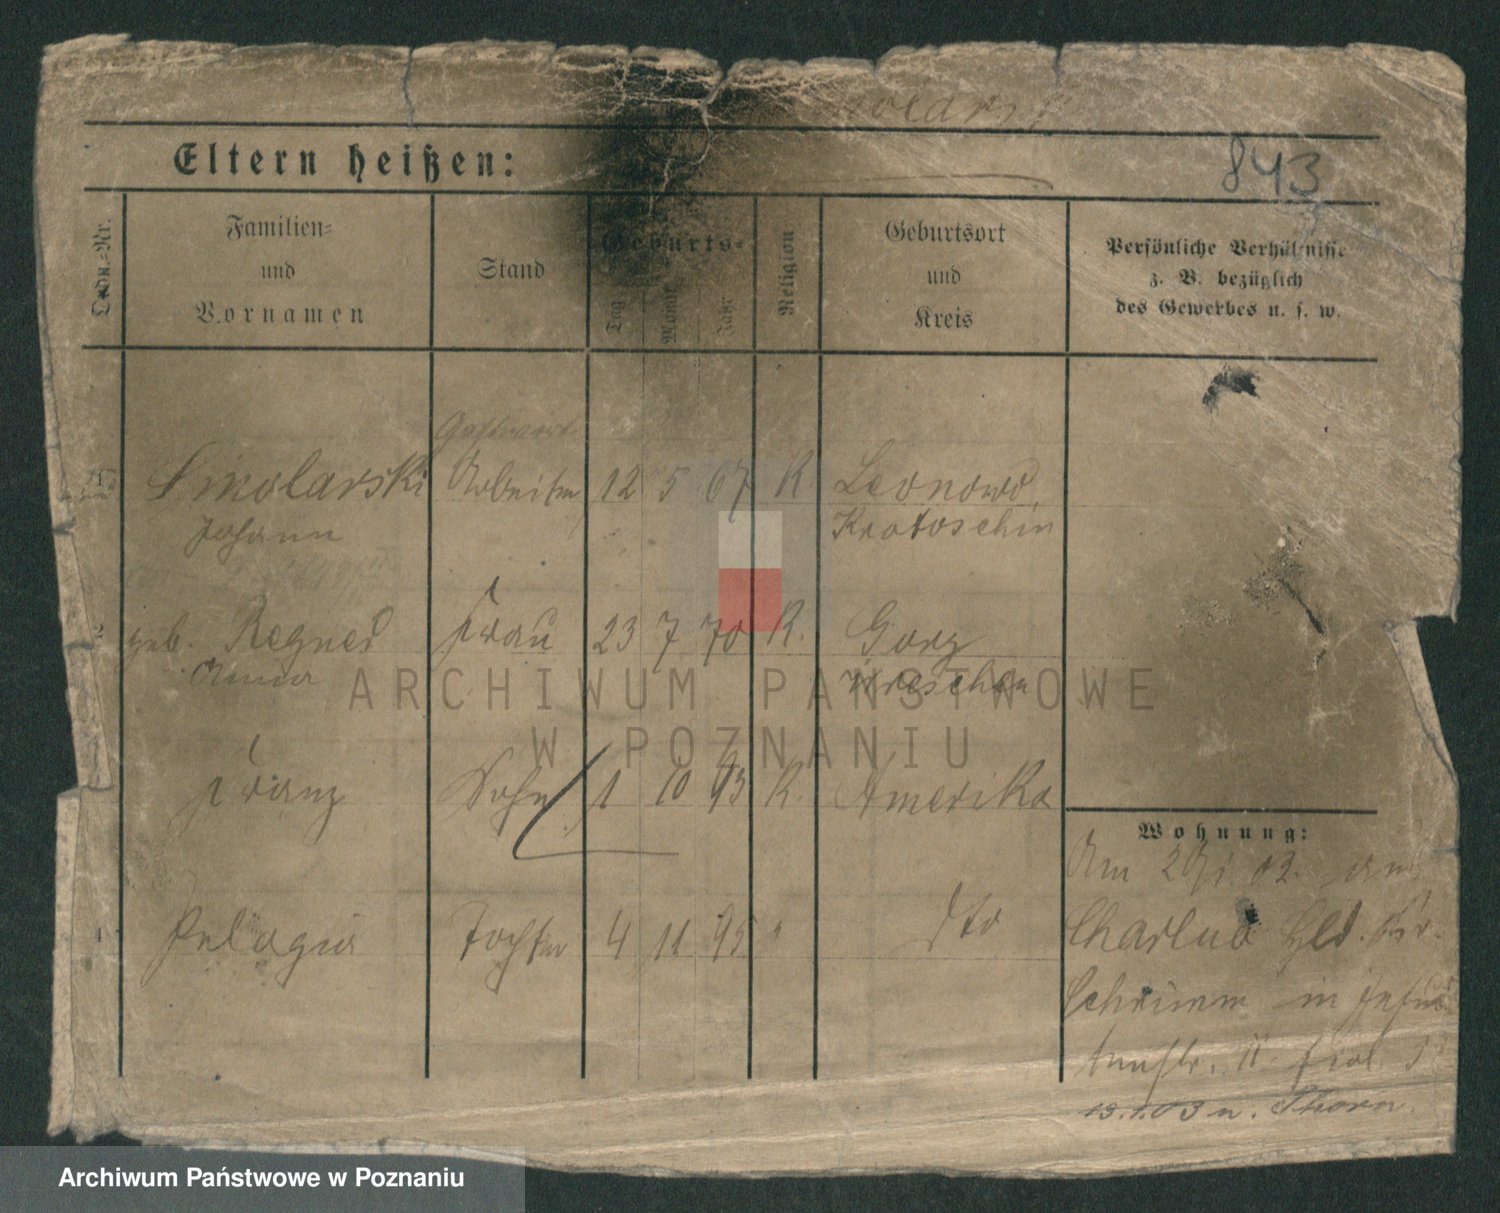 Eltern heißen:
843
Ordn.-Nr.
Familien-
und
Vornamen
Stand
Geburts-
Tag
Monat
Jahr
Religion
Geburtsort
und
Kreis
Persönliche Verhältnisse
z. B. bezüglich
des Gewerbes u. s. w.
Gastwirt
1 Smolarski Arbeiter 12 5 67 K Leonowo
Johann Krotoschin
2 geb. Regned Frau 23 7 70 K. Gorz
Anna Wreschen
Franz Sohn 1 10 93 K. Amerika
Pelagia Tochter 4 11 95 " dto
Wohnung:
Am 02.
Charlub
Schrimm in
II
13.1.03 n. Thorn.
ARCHIWUM PAŃSTWOWE
W POZNANIU
Archiwum Państwowe w Poznaniu